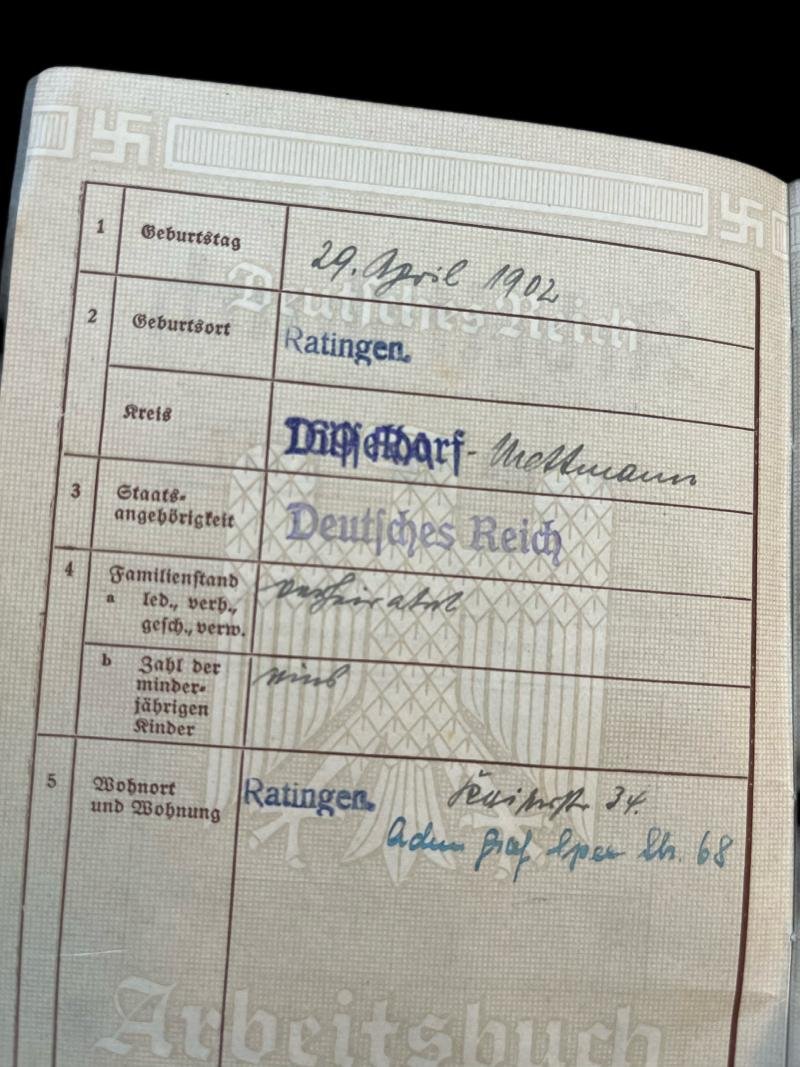 1 Geburtstag 29. April 1902
Deutsches Reich
2 Geburtsort Ratingen.
Kreis Düsseldorf- Mettmann
3 Staats-
angehörigkeit Deutsches Reich
4 Familienstand verheiratet
a led., verh.,
gesch., verw.
b Zahl der eins
minder-
jährigen
Kinder
5 Wohnort Ratingen. 34.
und Wohnung Graf Spee Str. 68
Arbeitsbuch